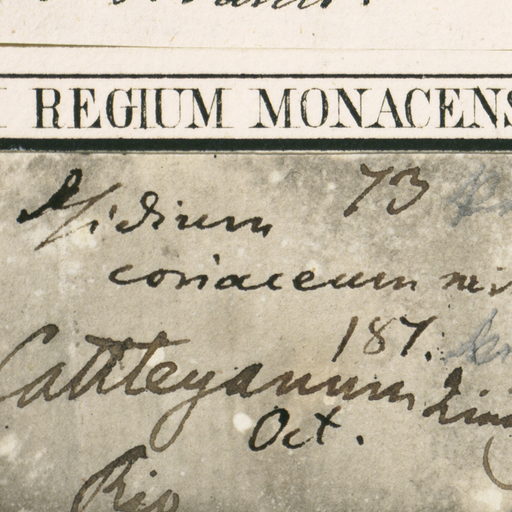 REGIUM MONACENS
73
Psidium
coriaceum
187.
Cattleyanum
Oct.
Rio